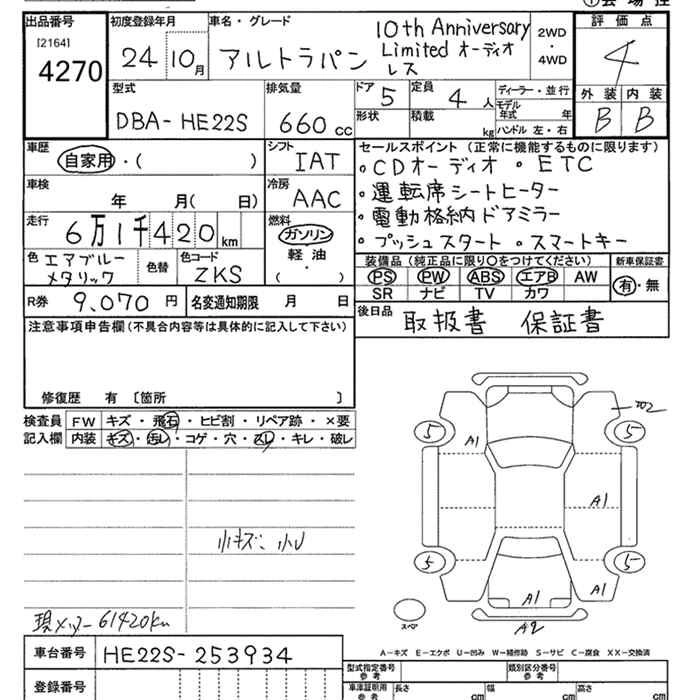 出品番号
[2164]
4270
初度登録年月
24 10月
車名・グレード
アルトラパン
10th Anniversary
Limited オーディオ
レス
2WD
・
4WD
評価点
4
外装 内装
B B
型式
DBA-HE22S
排気量
660 cc
ドア 5
形状
定員 4 人
積載 kg
ディーラー・並行
モデル年式 年
ハンドル 左・右
車歴
自家用・( )
シフト
IAT
セールスポイント (正常に機能するものに限ります)
・CDオーディオ ・ETC
・運転席シートヒーター
・電動格納ドアミラー
・プッシュスタート ・スマートキー
車検
年 月( 日)
冷房
AAC
走行
6万1千420km
燃料
ガソリン
軽油
・
( )
色 エアブルー
メタリック
色替
色コード
ZKS
装備品 (純正品に限り○をつけてください)
PS PW ABS エアB AW
SR ナビ TV カワ
新車保証書
有・無
R券 9,070 円
名変通知期限 月 日
後日品 取扱書 保証書
注意事項申告欄 (不具合内容等は具体的に記入して下さい)
修復歴 有 〔箇所 〕
検査員
記入欄
FW キズ・飛石・ヒビ割・リペア跡・×要
内装 キズ・汚レ・コゲ・穴・スレ・キレ・破レ
小キズ、小U
現メーター61420km
5 5
A1
A1
5 5
A1 A1
A2
スペア
A-キズ E-エクボ U-凹み W-補修跡 S-サビ C-腐食 XX-交換済
車台番号 HE22S-253934
登録番号
型式指定番号
参考
類別区分番号
参考
車庫証明用
参考
長さ cm
幅 cm
高さ cm